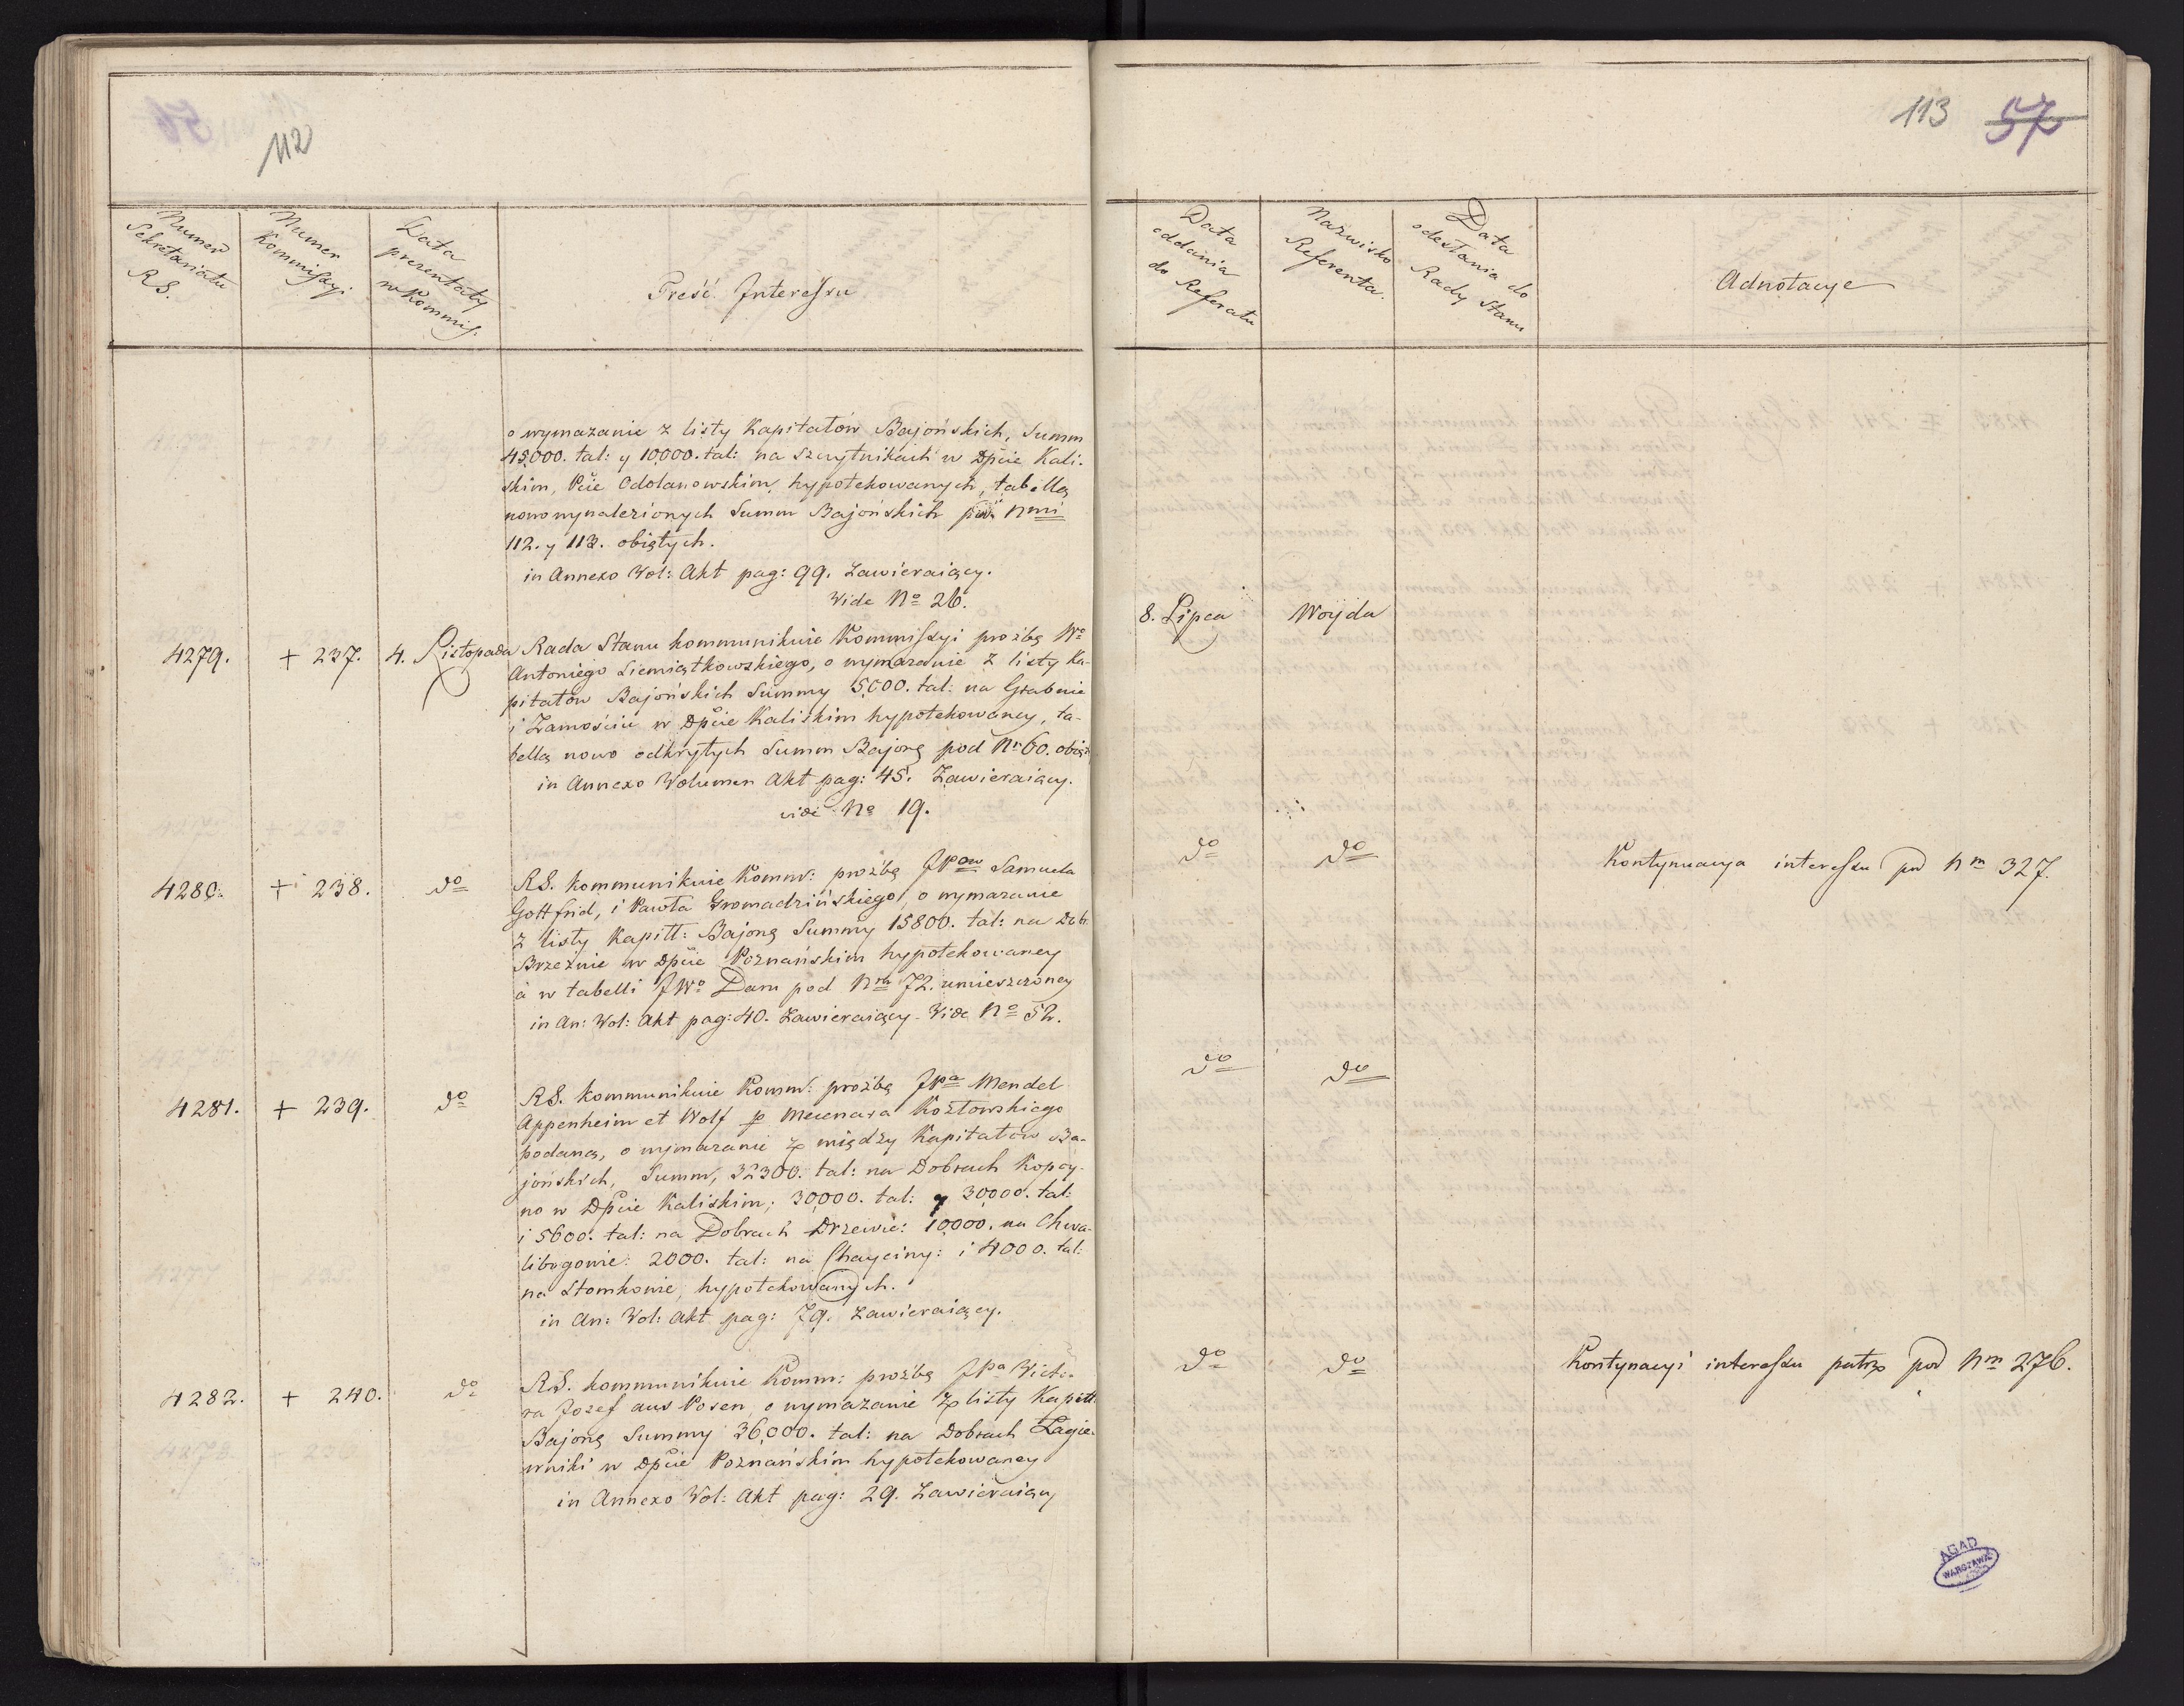 112
Numer Sekretariatu RS.
Numer Kommissyi
Data prezentaty w Kommis:
Treść Interessu
o wymazanie z listy Kapitałów Bajońskich, Summ
45,000. tal: y 10,000. tal: na Szczytnikach w Dpcie Kali-
skim, Pcie Odolanowskim, hypotekowanych, tabellą
nowo wynalezionych Summ Bajońskich pod Nmi
112. y 113. obiętych.
in Annexo Vol: Akt pag: 99. Zawieraiący.
Vide No 26.
4279. + 237. 4. Listopada Rada Stanu kommunikuie Kommissyi prożbę Wo
Antoniego Siemiątkowskiego, o wymazanie z listy Ka-
pitałow Bajońskich Summy 15,000. tal: na Grabnie
i Zamościu w Dpcie Kaliskim hypotekowaney, ta-
bellą nowo odkrytych Summ Bajons pod Nr 60. obięt
in Annexo Volumen Akt pag: 45. Zawieraiący.
vide No 19.
4280. + 238. do RS. kommunikuie Komm: prożbę JPow Samuela
Gottfrid, i Pawła Gromadzińskiego, o wymazanie
z listy Kapitt: Bajons Summy 15800. tal: na Dobr
Brzeznie w Dpcie Poznańskim hypotekowaney
a w tabelli JWo Daru pod Nrm 72. umieszczoney
in An: Vol: Akt pag: 40. Zawieraiący. Vide No 52.
4281. + 239. do RS. kommunikuie Komm: prożbę JPa Mendel
Appenheim et Wolf p Mecenasa Kozłowskiego
podaną, o wymazanie z między Kapitałow Ba-
jońskich, Summ, 32300. tal: na Dobrach Kopcy-
no w Dpcie Kaliskim; 30,000. tal: y 30,000. tal:
i 5600. tal: na Dobrach Drzewce: 10,000. na Chwa-
libogowie: 2000. tal: na Chayciny: i 4000. tal:
na Słomkowie, hypotekowanych.
in An: Vol: Akt pag: 79. Zawieraiący.
4282. + 240. do RS. kommunikuie Komm: prożbę JPa Wicto-
ra Jozef aus Posen, o wymazanie z listy Kapitt.
Bajons Summy 36,000. tal: na Dobrach Łagie-
wniki w Dpcie Poznańskim hypotekowaney
in Annexo Vol: Akt pag: 29. Zawieraiący
113 57
Data oddania do Referatu
Nazwisko Referenta.
Data odesłania do Rady Stanu
Adnotacye
8. Lipca Woyda
do do Kontynuacya interessu pod Nm 327.
do do
do do Kontynacyi interessu patrz pod Nm 276.
AGAD
WARSZAWA